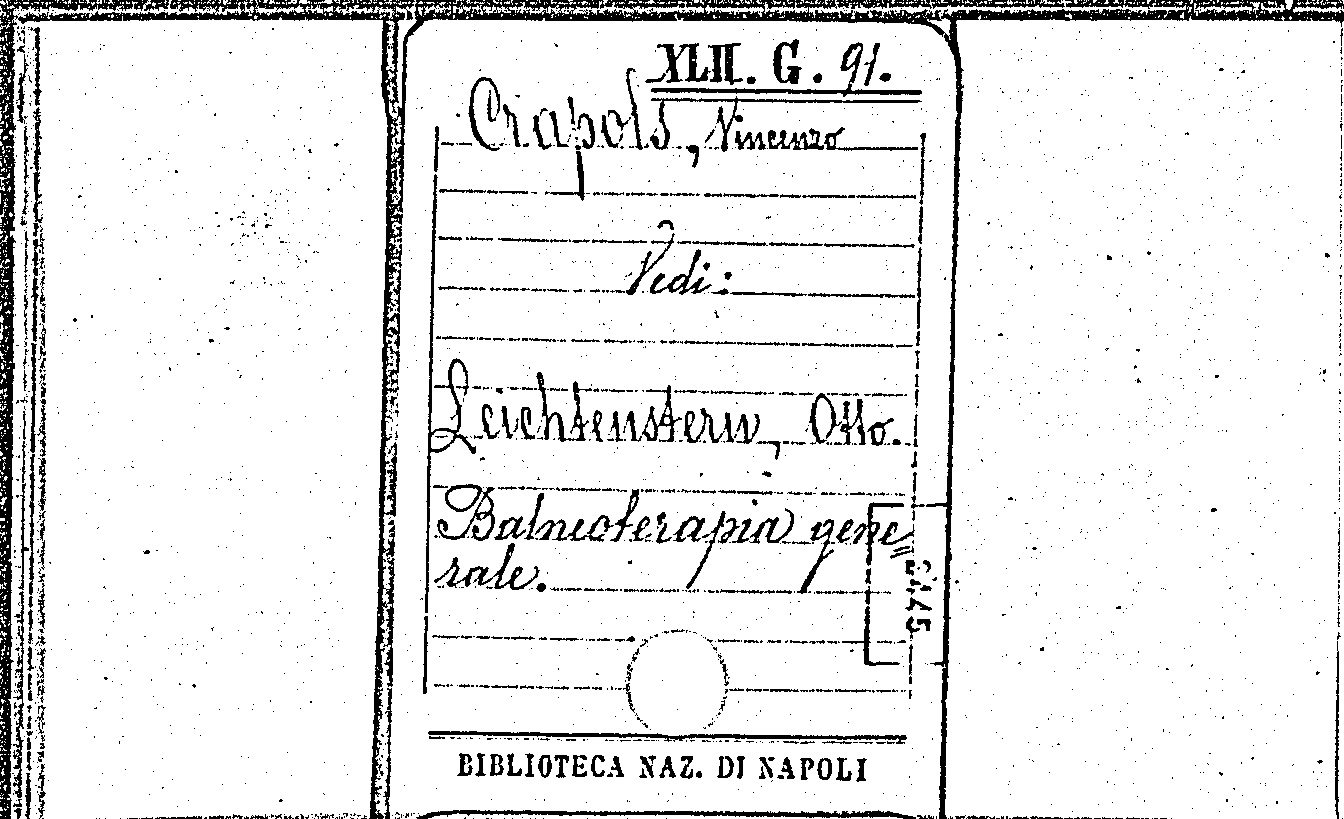 XLII. G. 91.
Crapols, Vincenzo
Vedi:
Leichtenstern, Otto.
Balneoterapia gene
rale.
BIBLIOTECA NAZ. DI NAPOLI